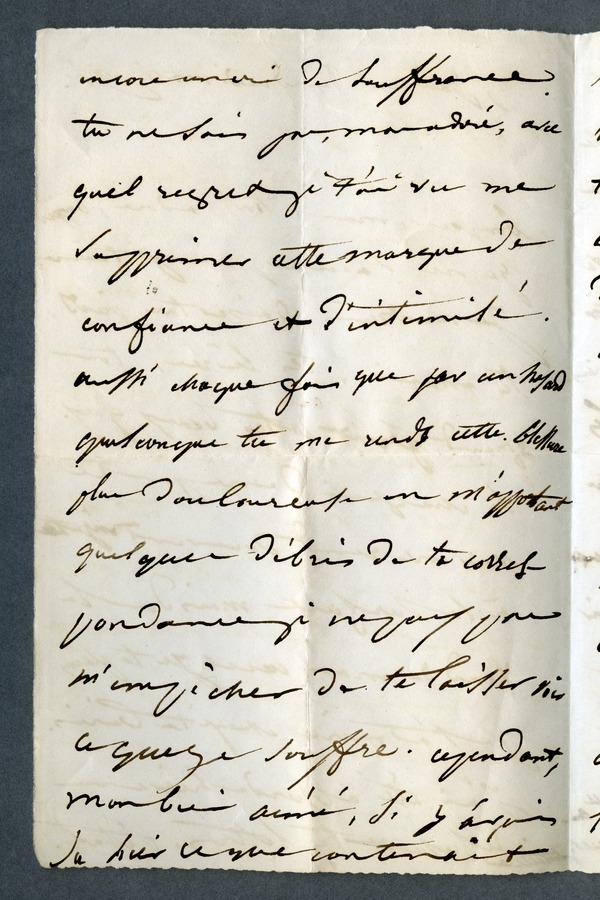 encore un cri de souffrance.
tu ne sais pas, mon adoré, avec
quel regret je t'ai vu me
supprimer cette marque de
confiance et d'intimité.
aussi chaque fois que par un hasard
quelconque tu me rends cette blessure
plus douloureuse en m'apportant
quelques débris de ta corres
pondance je ne peux pas
m'empêcher de te laisser voir
ce que je souffre. cependant,
mon bien aimé, si j'avais
su hier ce que contenait